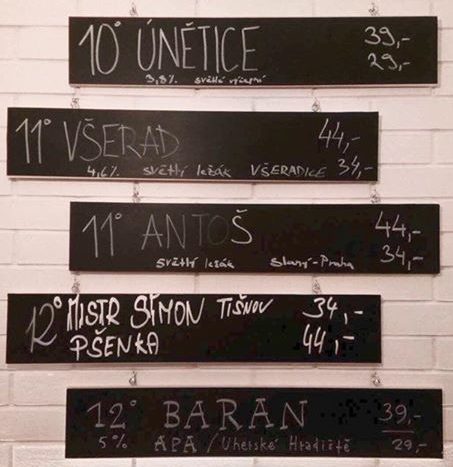 10° ÚNĚTICE 39,-
3,8% světlé výčepní 29,-
11° VŠERAD 44,-
4,6% světlý ležák VŠERADICE 34,-
11° ANTOŠ 44,-
světlý ležák Slaný-Praha 34,-
12° MISTR SIMON TIŠNOV 34,-
PŠENKA 44,-
12° BARAN 39,-
5% APA / Uherské Hradiště 29,-